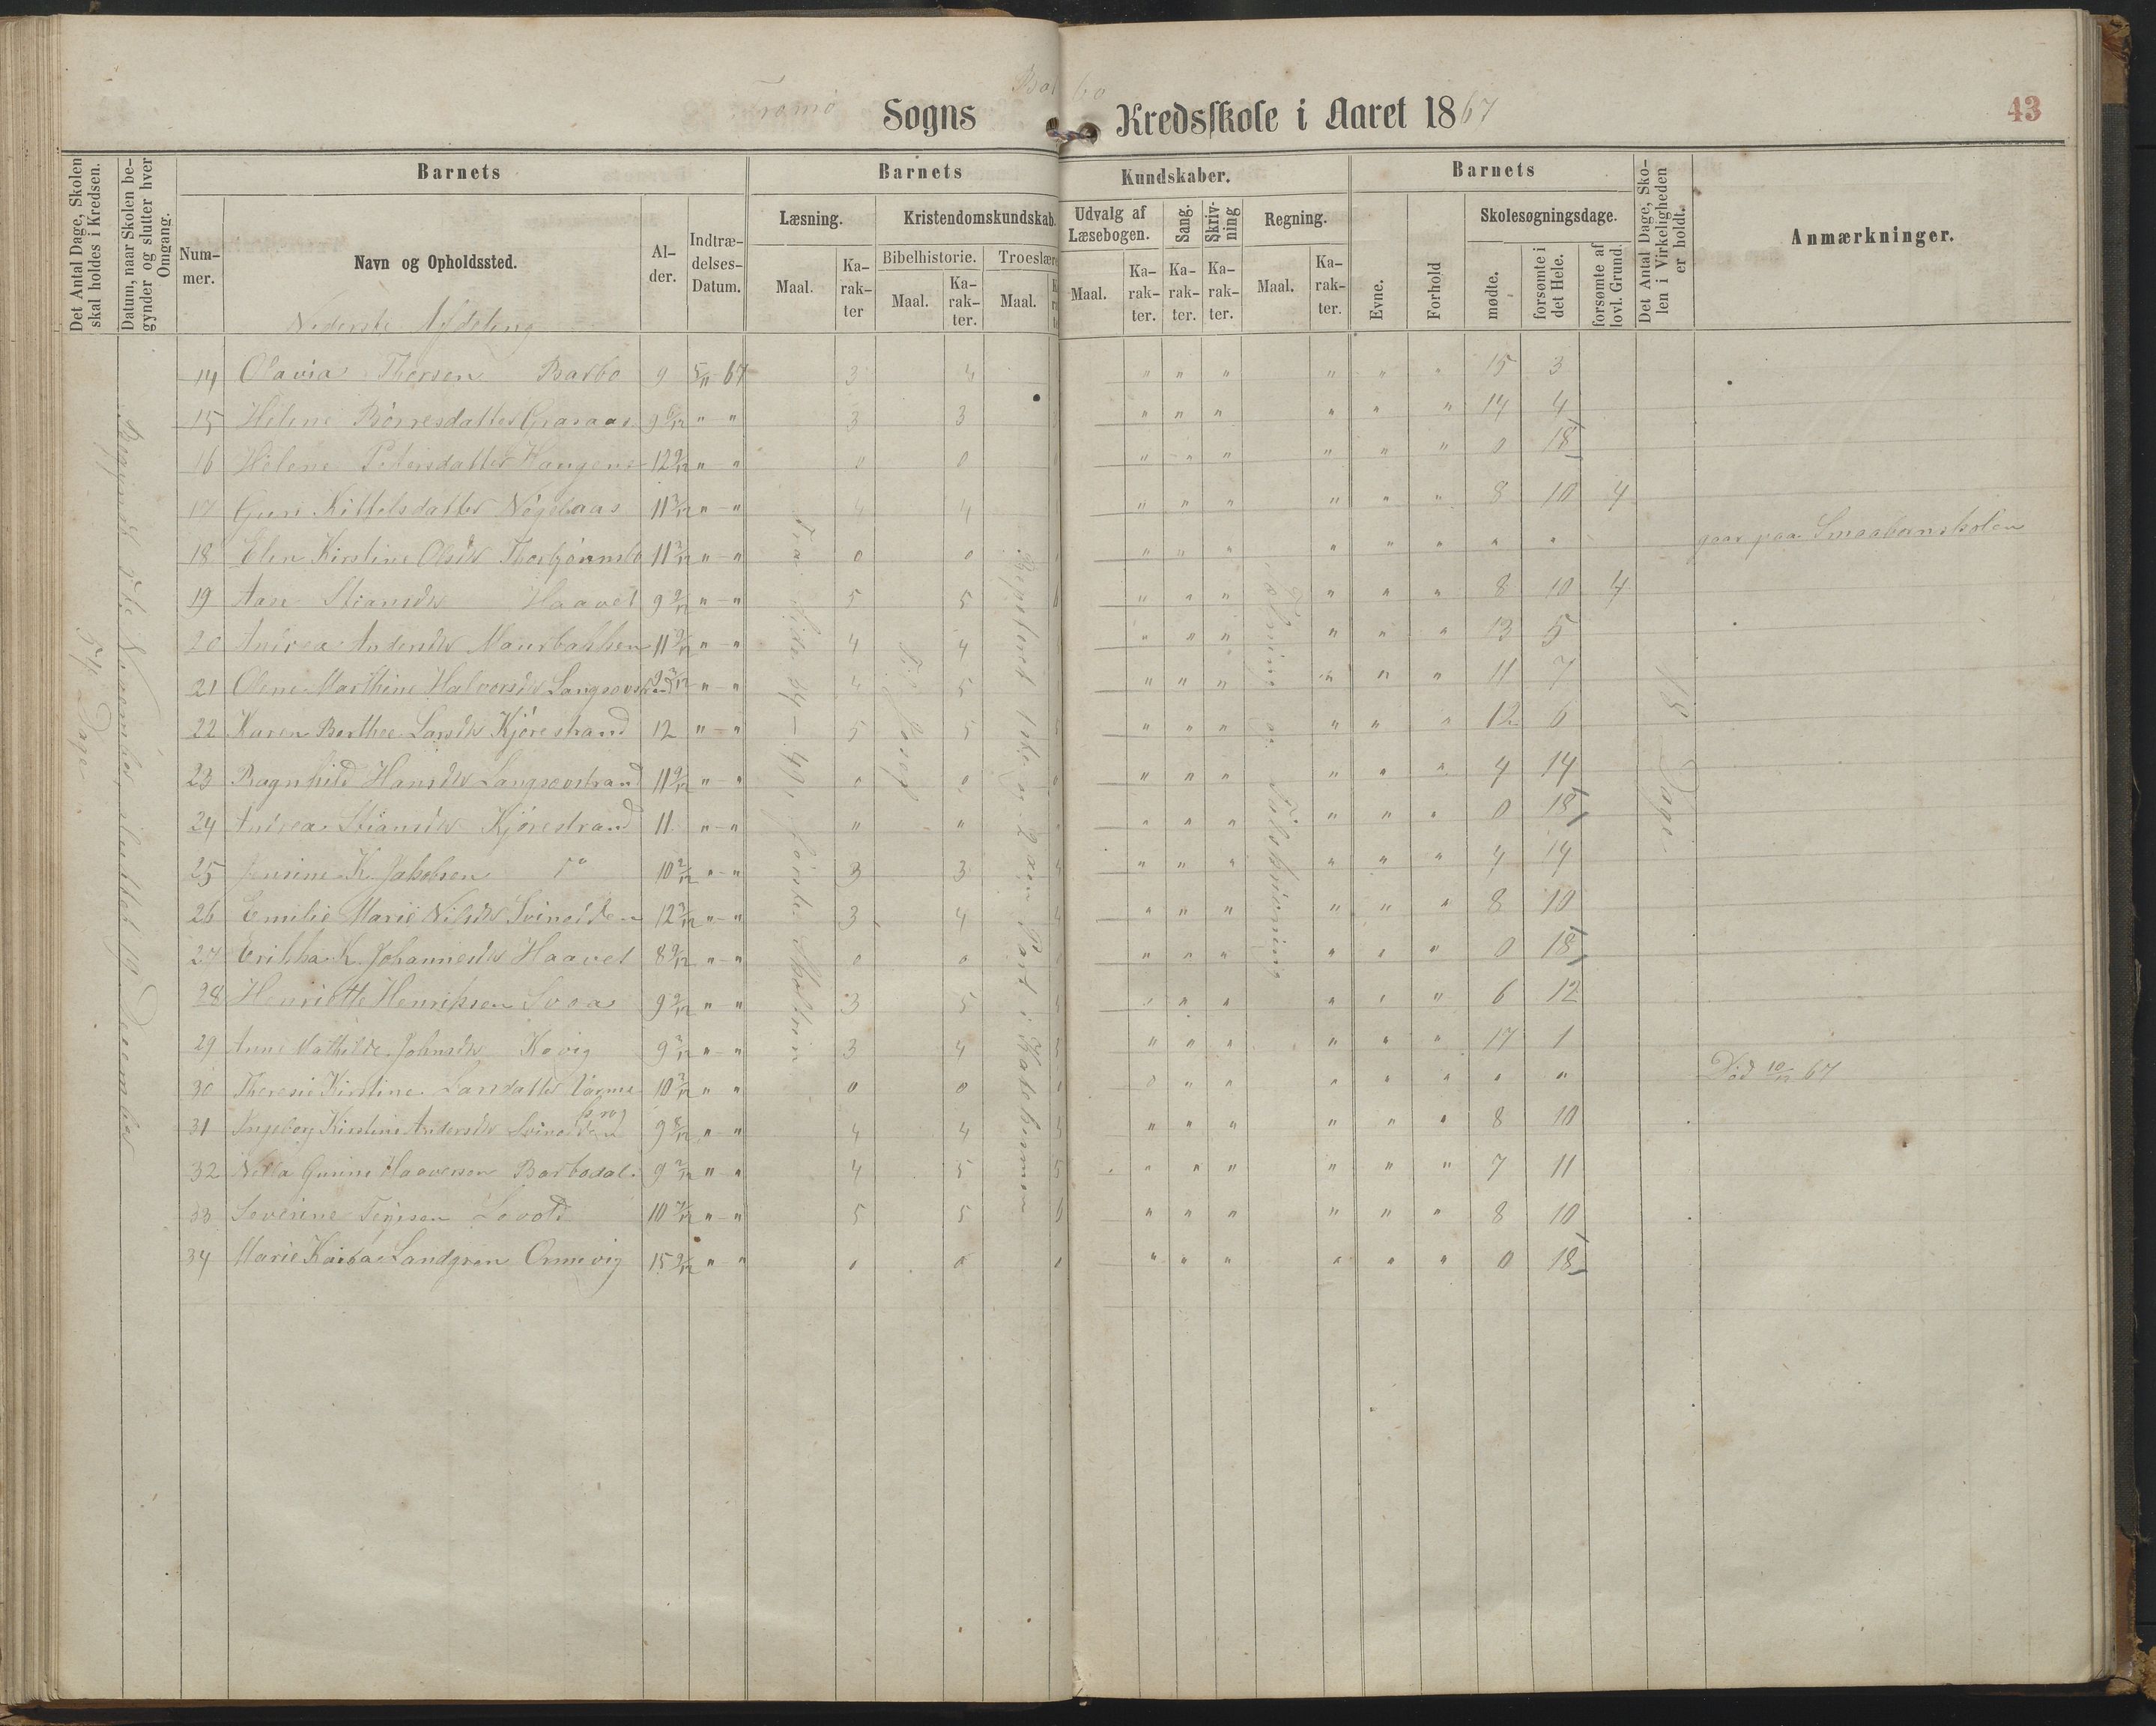 Tromø Sogns Barbo Kredsskole i Aaret 1867
43
Det Antal Dage, Skolen skal holdes i Kredsen.
Datum, naar Skolen begynder og slutter hver Omgang.
Barnets
Barnets
Kundskaber.
Barnets
Det Antal Dage, Skolen i Virkeligheden er holdt.
Anmærkninger.
Nummer.
Navn og Opholdssted.
Alder.
Indtrædelses-Datum.
Læsning.
Kristendomskundskab.
Udvalg af Læsebogen.
Sang.
Skrivning
Regning.
Evne.
Forhold
Skolesøgningsdage.
Maal.
Karakter
Bibelhistorie.
Troeslære
Maal.
Karakter.
Maal.
Maal.
Karakter.
Karakter.
Karakter.
Maal.
Karakter.
mødte.
forsømte i det Hele.
forsømte af lovl. Grund.
Nederste Afdeling
14 Olavia Thorsen Barbo 9 5/11 67 3 4 " " " " " " 15 3
15 Helene Börresdatter Graaas 9 6/12 " " 3 3 3 " " " " " " 14 4
16 Helene Pedersdatter Hangene 12 9/12 " " 0 0 0 " " " " " " 0 18
17 Guri Kittelsdatter 11 3/12 " " 4 4 " " " " " " 8 10 4
18 Elen Kirstine Olsdtr 11 3/12 " " 0 0 " " " " " " " " gaar paa Smaabarnskolen
19 Aase Stiansdtr Haavet 9 9/12 " " 5 5 6 " " " " " " 8 10 4
20 Andrea Andersdtr Maurbakken 11 9/12 " " 4 4 " " " " " " 13 5
21 Olene Marthine Halvorsdtr Langsævstrand 9 3/12 " " 4 5 " " " " " " 11 7
22 Karen Berthee Larsdtr Kjörestrand 12 " " 5 5 5 " " " " " " 12 6
23 Ragnhild Hansdtr Langsævstrand 11 9/12 " " 0 0 0 " " " " " " 4 14
24 Andrea Stiansdtr Kjörestrand 11 " " " " " " " " " " " 0 18
25 Jensine K. Jakobsen do 10 2/12 " " 3 3 4 " " " " " " 4 14
26 Emilie Marie Nilsdtr Svinodden 12 3/12 " " 3 4 4 " " " " " " 8 10
27 Erikka K. Johannesdtr Haavet 8 9/12 " " 0 0 0 " " " " " " 0 18
28 Henriette Henriksen Svaa 9 9/12 " " 3 5 " " " " " " 6 12
29 Anne Mathilde Johnsdtr Kovig 9 3/12 " " 3 4 3 " " " " " " 17 1
30 Theresie Kirstine Larsdatter 10 3/12 " " 0 0 0 " " " " " " " " Död 10/11 67
31 Ingeborg Kirstine Andersdtr Svinodden 9 8/12 " " 4 4 3 " " " " " " 8 10
32 Gunine Haaversen Barbodal 9 2/12 " " 4 5 5 " " " " " " 7 11
33 Severine Terjesen 10 " " 5 5 6 " " " " " " 8 10
34 Marie Landgren Ormevig 15 9/12 " " 0 0 0 " " " " " " 0 18
54 Dage
Begyndt 5te November, sluttet 14 December
Fra Side 34–49, förste Skoletrin
Tabning og Talskrivning
18 Dage